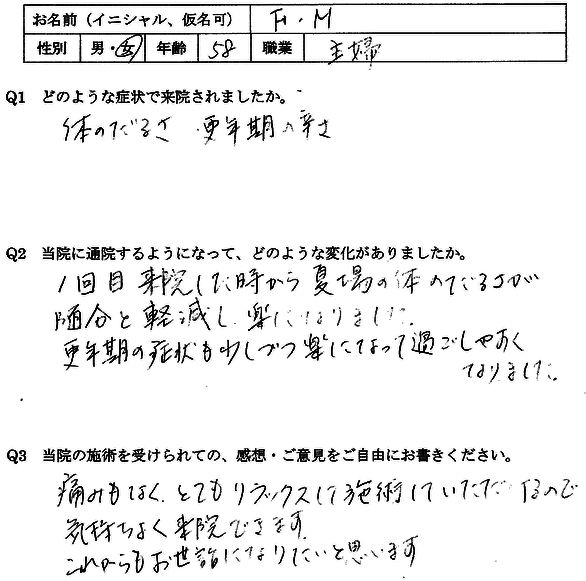 お名前（イニシャル、仮名可） H・M
性別 男・女 年齢 58 職業 主婦
Q1 どのような症状で来院されましたか。
体のだるさ 更年期の辛さ
Q2 当院に通院するようになって、どのような変化がありましたか。
1回目来院した時から夏場の体のだるさが
随分と軽減し楽になりました。
更年期の症状も少しづつ楽になって過ごしやすく
なりました。
Q3 当院の施術を受けられての、感想・ご意見をご自由にお書きください。
痛みもなく、とてもリラックスして施術していただけるので
気持ちよく来院できます。
これからもお世話になりたいと思います